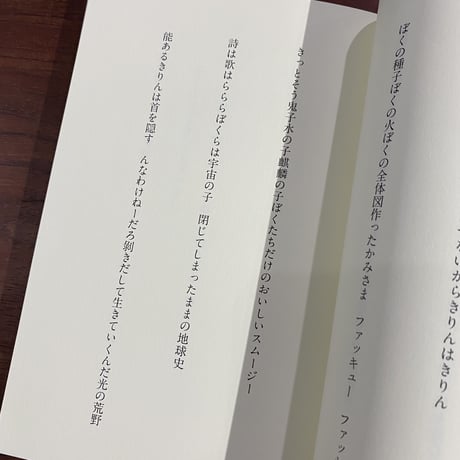 ないからきりんはきりん
ぼくの種子ぼくの火ぼくの全体図作ったかみさま　ファッキュー　ファッ
きっとそう鬼子水の子麒麟の子ぼくたちだけのおいしいスムージー
詩は歌はららぼくらは宇宙の子　閉じてしまったままの地球史
能あるきりんは首を隠す　んなわけねーだろ剝きだして生きていくんだ光の荒野